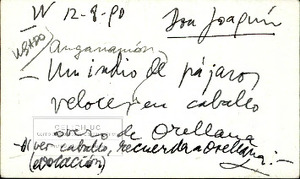 W 12-8-90 Don Joaquín
USADO
(anganamón)
- Un indio de pájaros
veloces, en caballo
overo de Orellana
- Al ver caballo, recuerda a Orellana. -
(evocación)